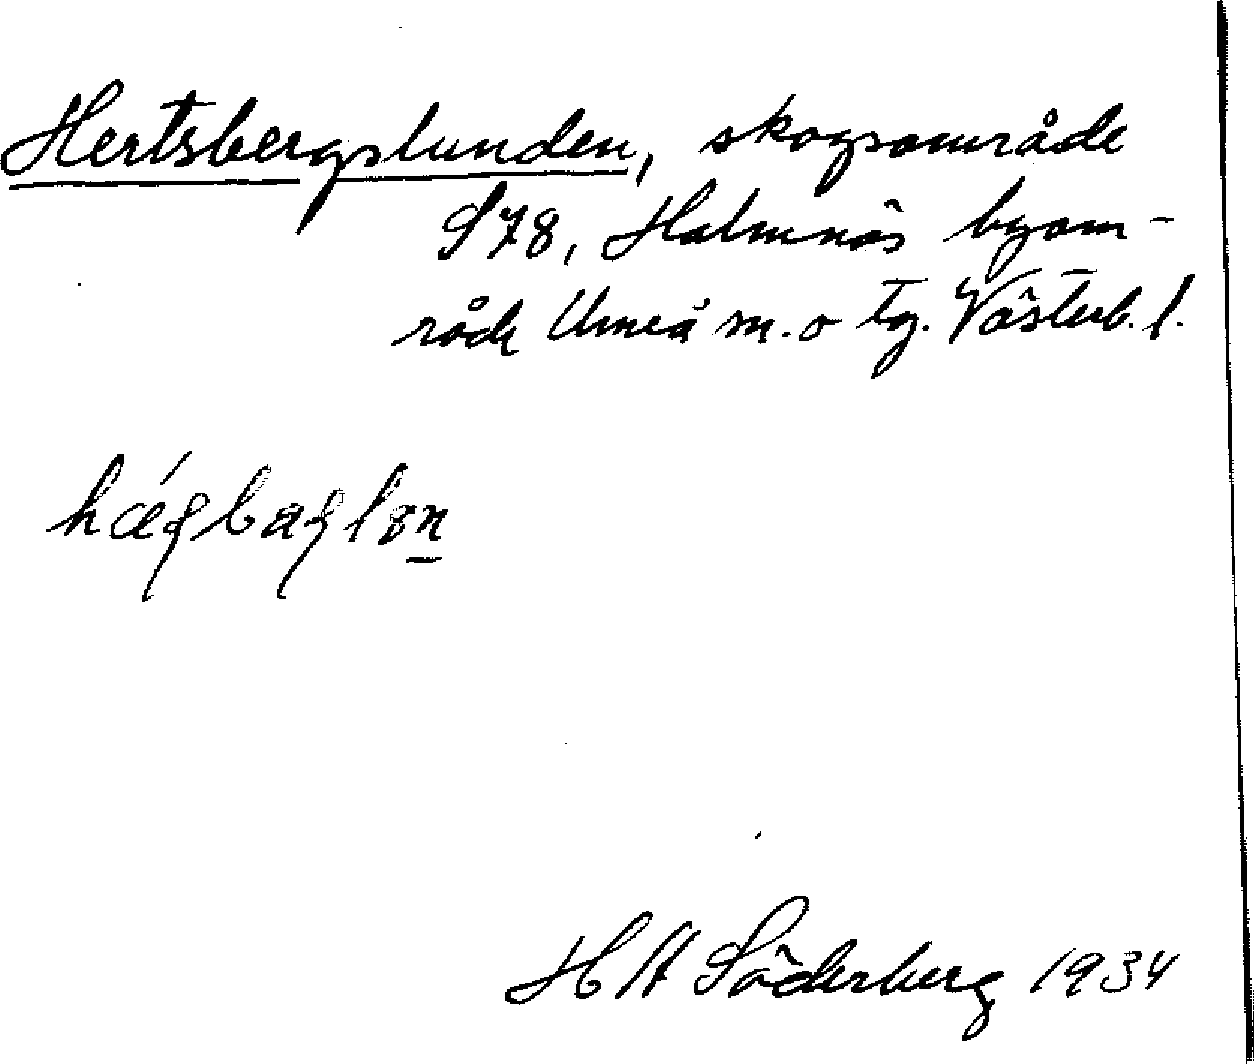 Hertsbergslunden, skogsområde
S78, Holmnäs byom-
råde Umeå m. o tg. Västerb. l.
H A Söderberg 1934